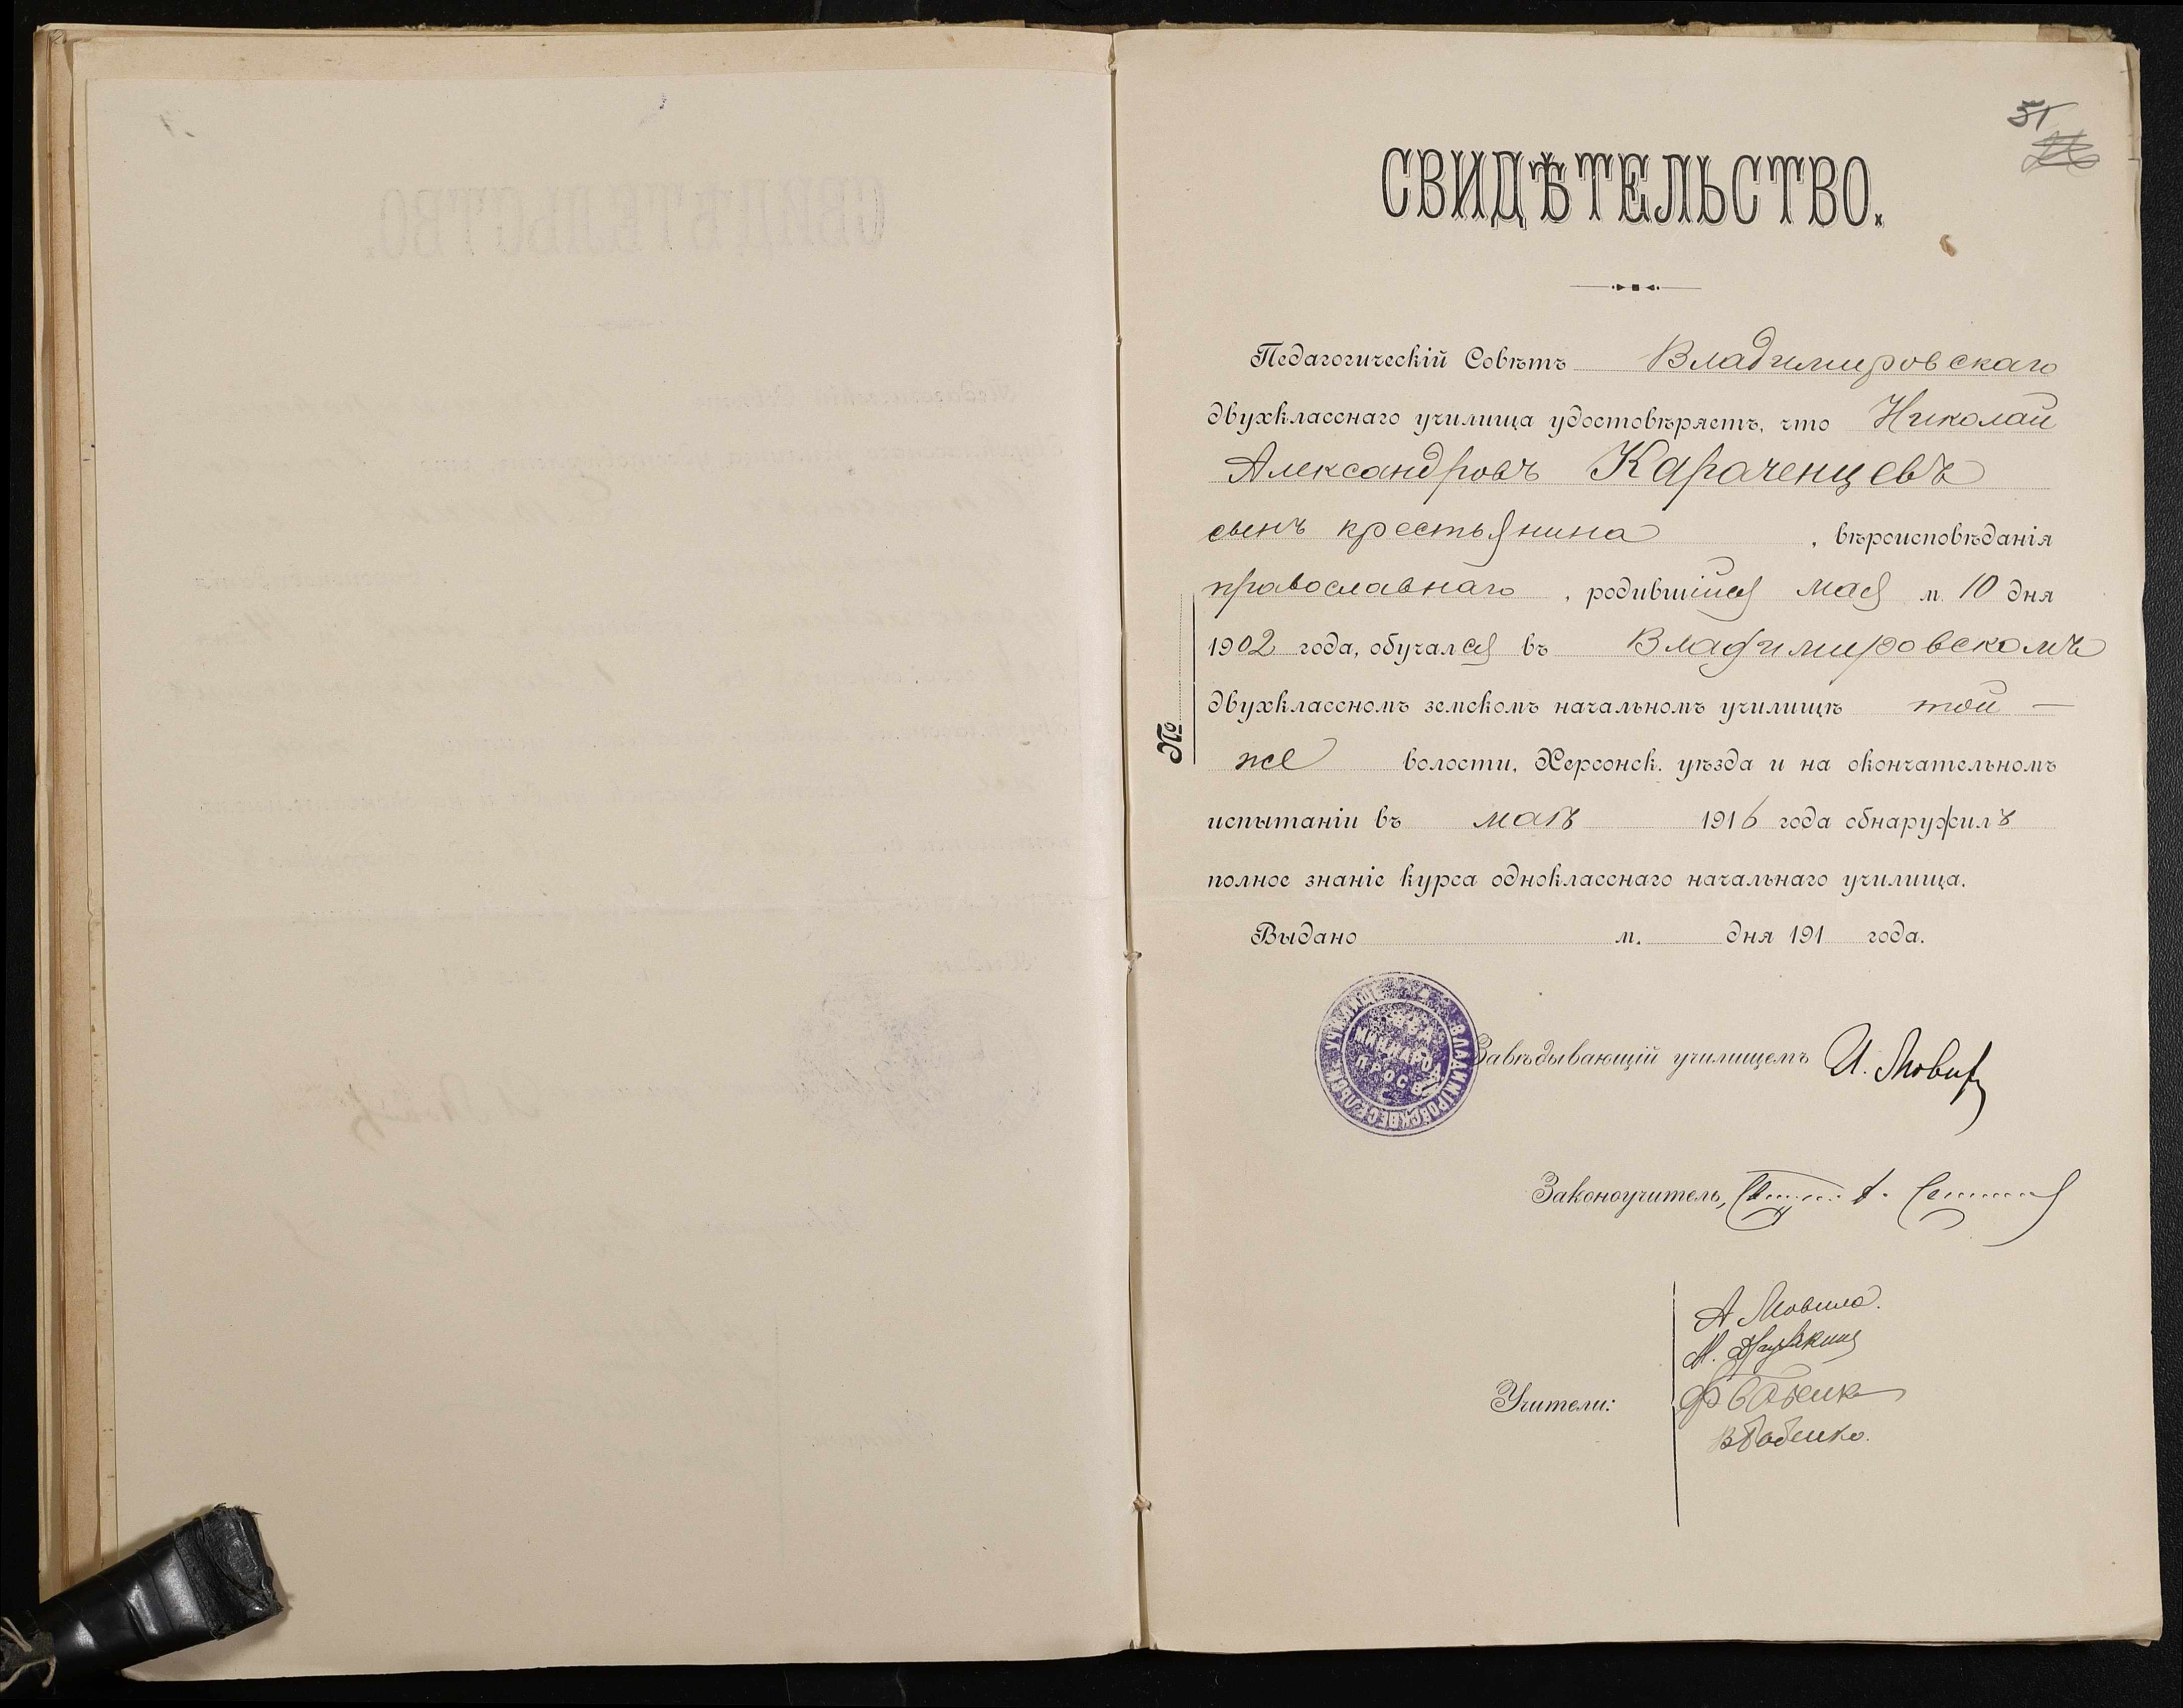 51
СВИДѢТЕЛЬСТВО.
Педагогическій Совѣтъ Владимировскаго
двухкласснаго училища удостовѣряетъ, что Николай
Александровъ Караченцевъ
сынъ крестьянина , вѣроисповѣданія
православнаго , родившійся мая м. 10 дня
1902 года, обучался въ Владимировскомъ
двухклассномъ земскомъ начальномъ училищѣ той —
же волости, Херсонск. уѣзда и на окончательномъ
испытаніи въ маѣ 1916 года обнаружилъ
полное знаніе курса одноклассного начальнаго училища.
Выдано м. дня 191 года.
№
ВЛАДИМІРОВСК ВЕСЕЛЬСК УЧИЛИЩЕ
ВѢД.
МИН. НАРОД.
ПРОСВ.
Завѣдывающій училищемъ И.
Законоучитель,
А Мовила.
М.
Учители:
В Бабенко.